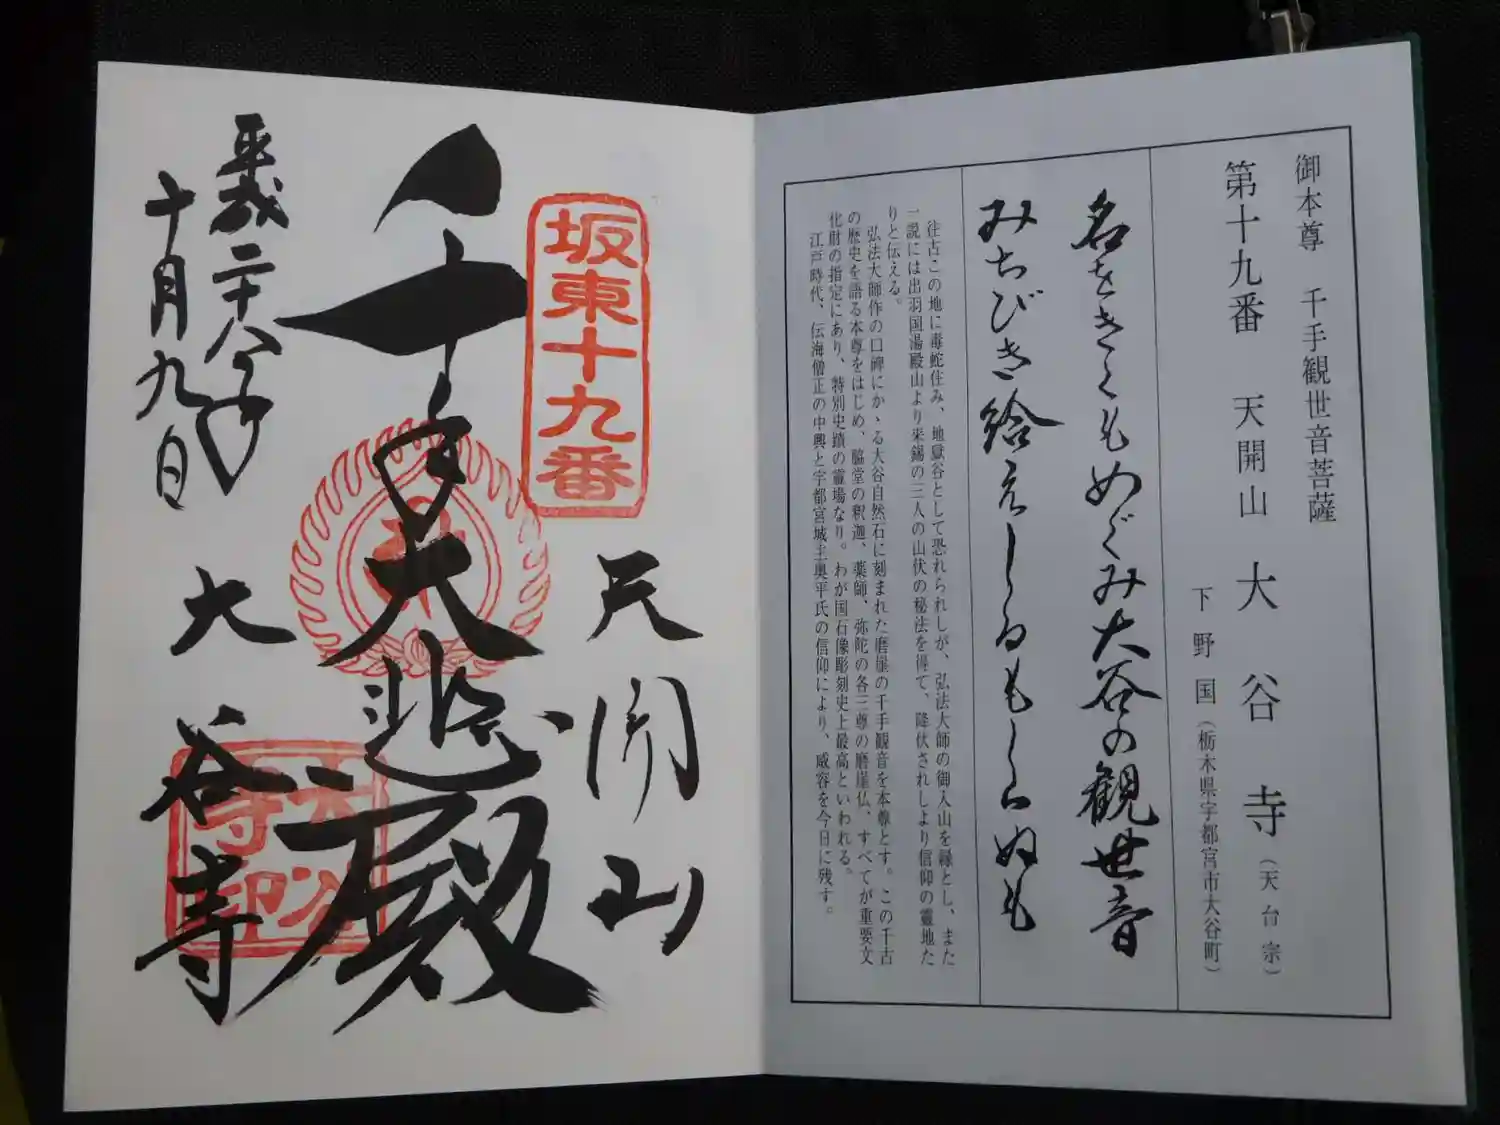 御本尊 千手観世音菩薩
第十九番 天開山 大谷寺(天台宗)
下野国(栃木県宇都宮市大谷町)
名をきくもめぐみ大谷の観世音
みちびき給えしるもしらぬも
往古この地に毒蛇住み、地獄谷として恐れられしが、弘法大師の御入山を縁とし、また
一説には出羽国湯殿山より来錫の三人の山伏の秘法を得て、降伏されしより信仰の霊地た
りと伝える。
弘法大師作の口碑にかゝる大谷自然石に刻まれた磨崖の千手観音を本尊とす。この千古
の歴史を語る本尊をはじめ、脇堂の釈迦、薬師、弥陀の各三尊の磨崖仏、すべてが重要文
化財の指定にあり、特別史蹟の霊場なり。わが国石像彫刻史上最高といわれる。
江戸時代、伝海僧正の中興と宇都宮城主奥平氏の信仰により、威容を今日に残す。
坂東十九番
天開山
千手大悲殿
平成二十八年
十月九日
大谷寺
大谷寺印